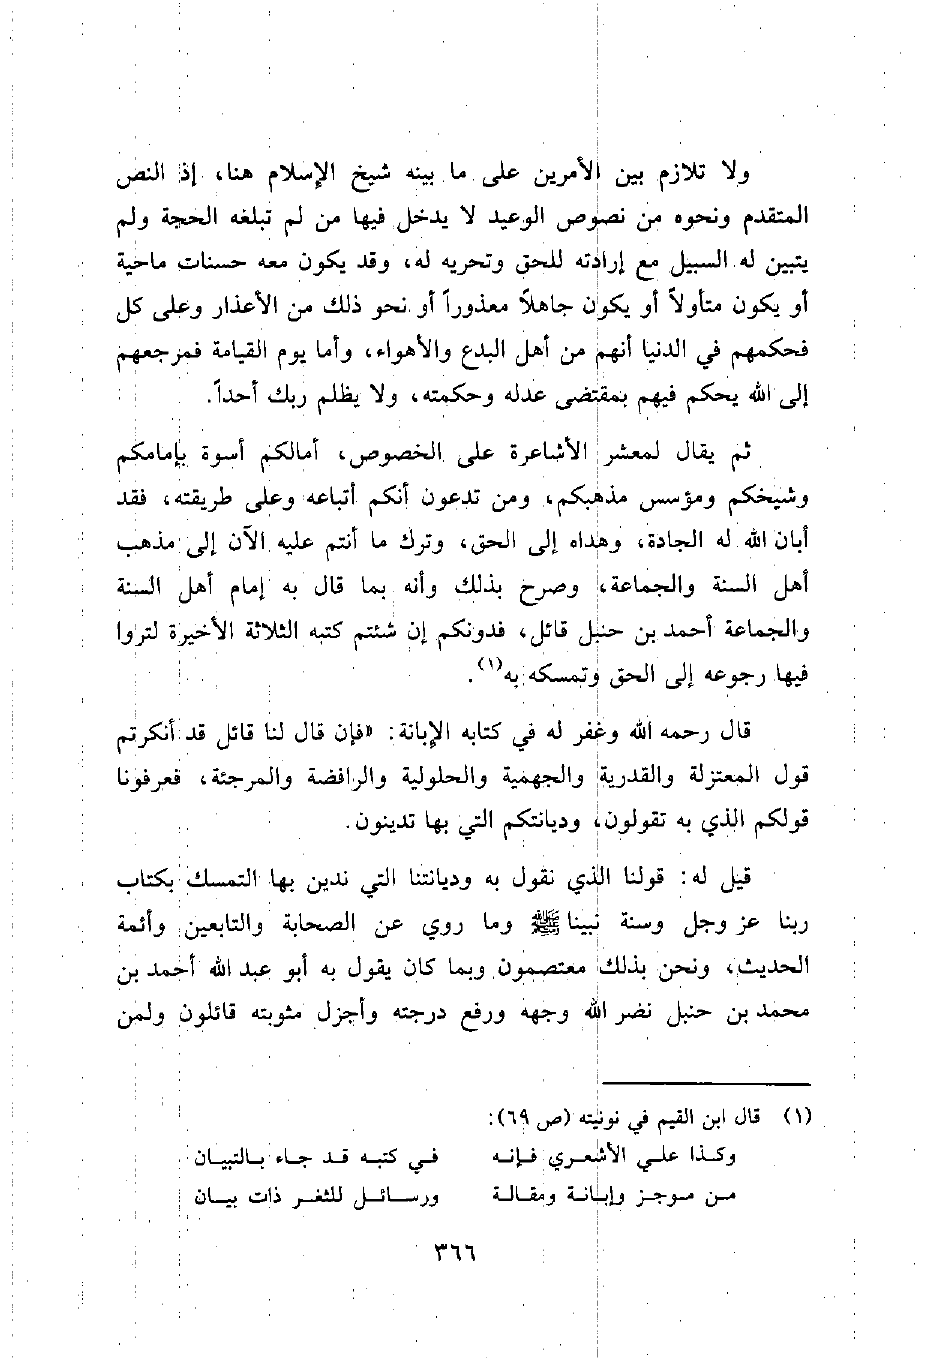 ولا تلازم بين الأمرين على ما بينه شيخ الإسلام هنا، إذ النص
المتقدم ونحوه من نصوص الوعيد لا يدخل فيها من لم تبلغه الحجة ولم
يتبين له السبيل مع إرادته للحق وتحريه له، وقد يكون معه حسنات ماحية
أو يكون متأولاً أو يكون جاهلاً معذوراً أو نحو ذلك من الأعذار وعلى كل
فحكمهم في الدنيا أنهم من أهل البدع والأهواء، وأما يوم القيامة فمرجعهم
إلى الله يحكم فيهم بمقتضى عدله وحكمته، ولا يظلم ربك أحداً.
ثم يقال لمعشر الأشاعرة على الخصوص، أمالكم أسوة بإمامكم
وشيخكم ومؤسس مذهبكم، ومن تدعون أنكم أتباعه وعلى طريقته، فقد
أبان الله له الجادة، وهداه إلى الحق، وترك ما أنتم عليه الآن إلى مذهب
أهل السنة والجماعة، وصرح بذلك وأنه بما قال به إمام أهل السنة
والجماعة أحمد بن حنبل قائل، فدونكم إن شئتم كتبه الثلاثة الأخيرة لتروا
فيها رجوعه إلى الحق وتمسكه به(١).
قال رحمه الله وغفر له في كتابه الإبانة: «فإن قال لنا قائل قد أنكرتم
قول المعتزلة والقدرية والجهمية والحلولية والرافضة والمرجئة، فعرفونا
قولكم الذي به تقولون، وديانتكم التي بها تدينون.
قيل له: قولنا الذي نقول به وديانتنا التي ندين بها التمسك بكتاب
ربنا عز وجل وسنة نبينا ﷺ وما روي عن الصحابة والتابعين وأئمة
الحديث، ونحن بذلك معتصمون وبما كان يقول به أبو عبد الله أحمد بن
محمد بن حنبل نضر الله وجهه ورفع درجته وأجزل مثوبته قائلون ولمن
(١) قال ابن القيم في نونيته (ص ٦٩):
وكذا علي الأشعري فإنه في كتبه قد جاء بالتبيان
من موجز وإبانة ومقالة ورسائل للثغر ذات بيان
٣٦٦